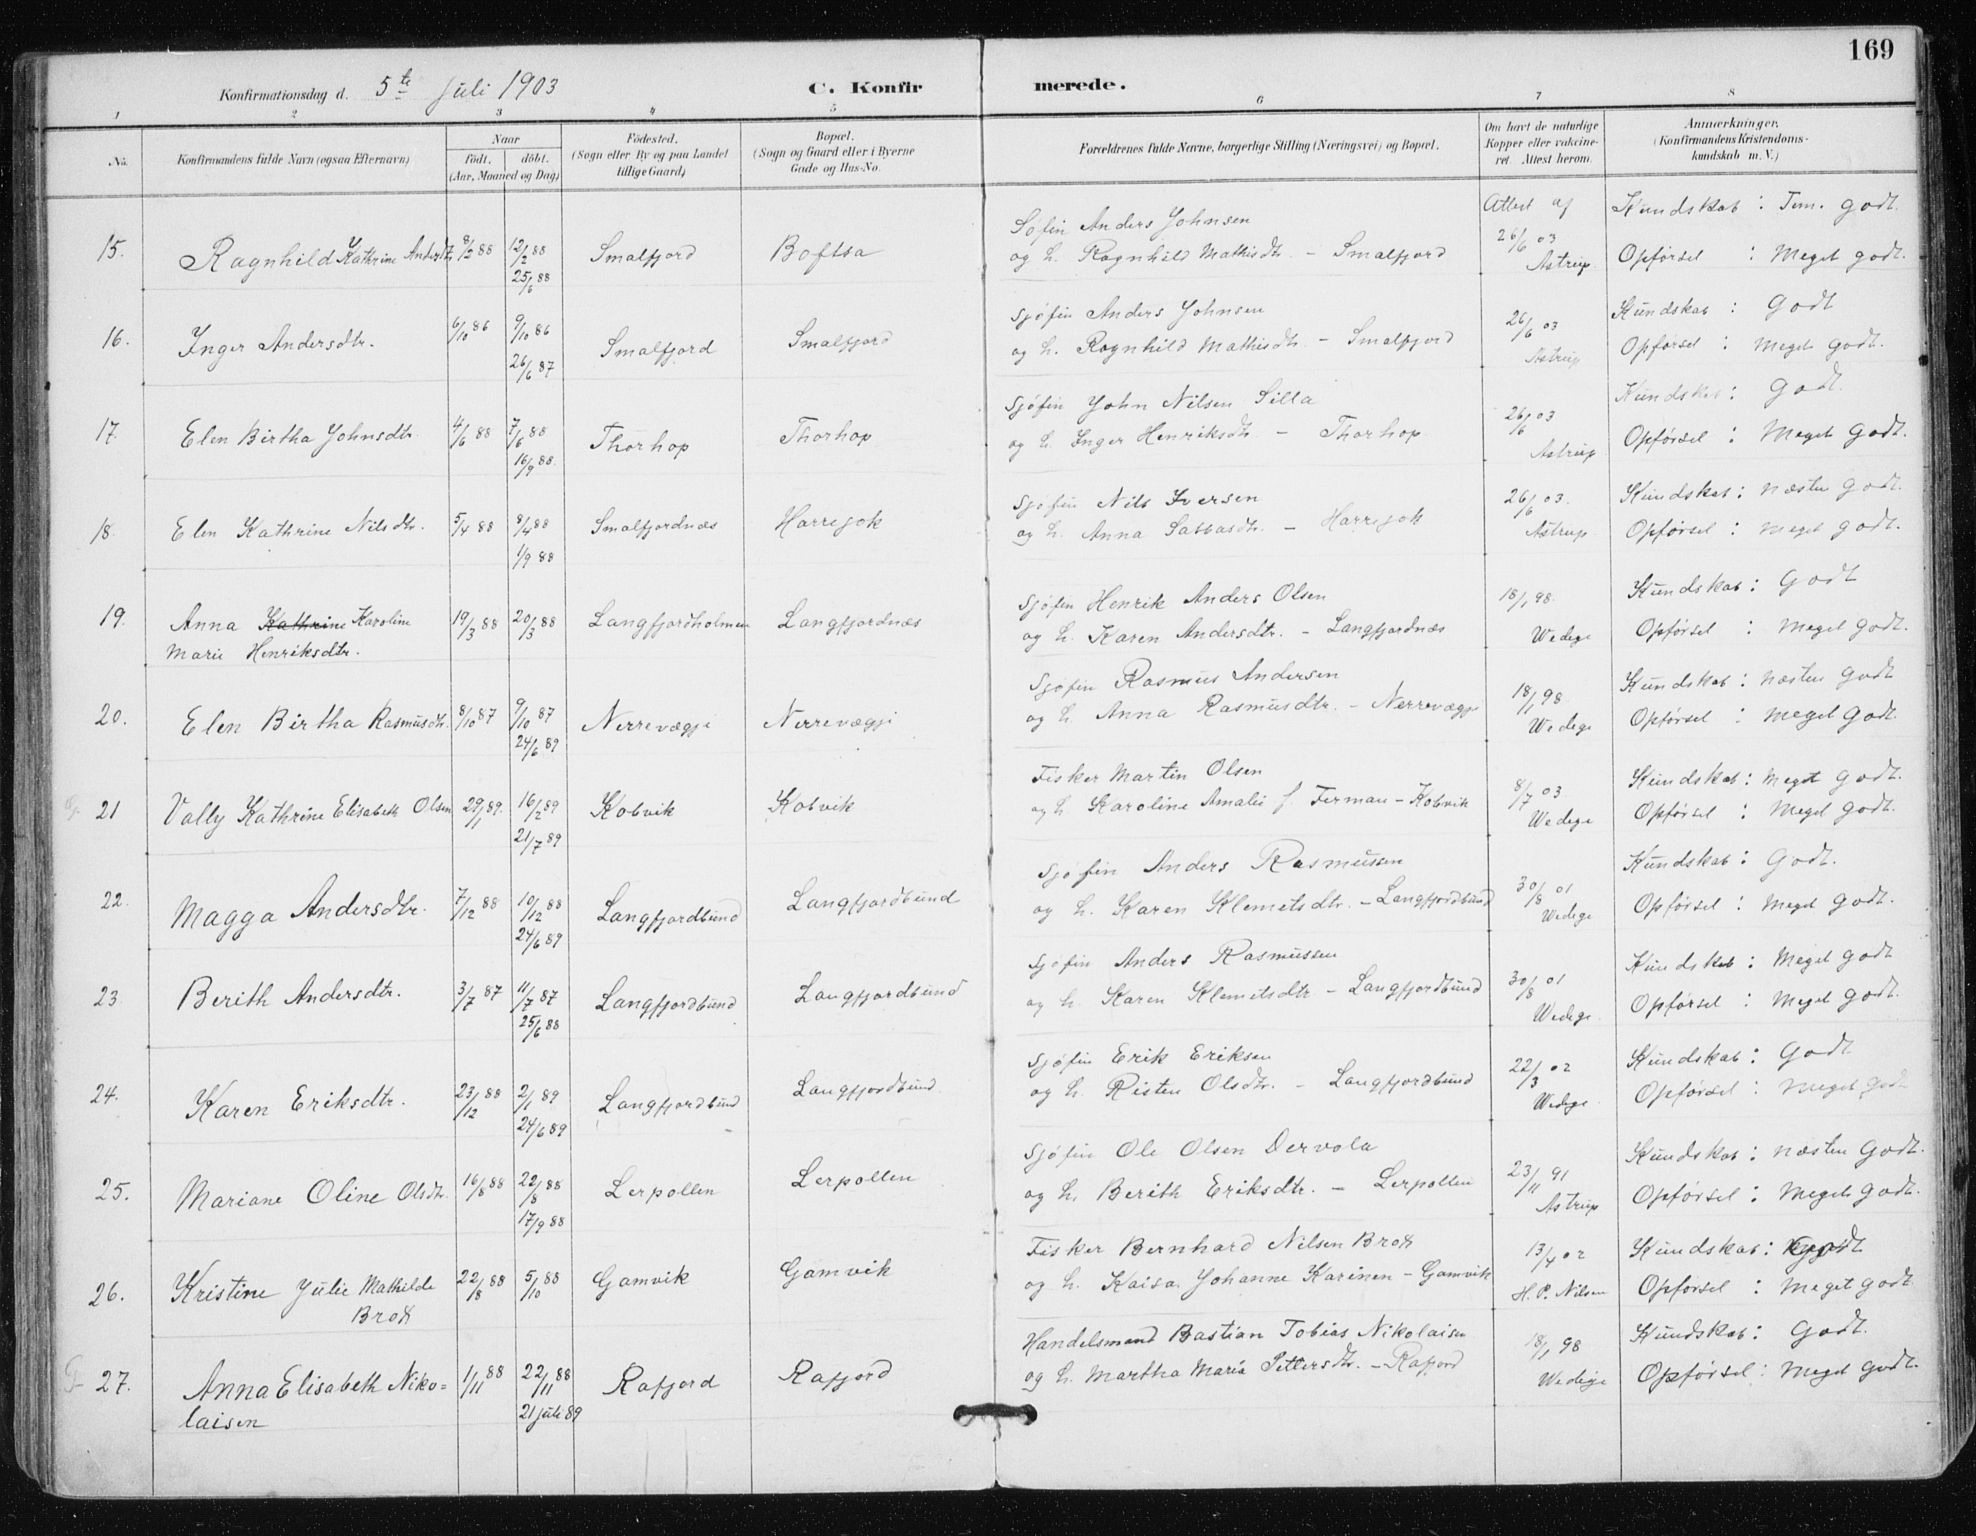 169
Konfirmationsdag d. 5te Juli 1903 C. Konfirmerede.
1 2 3 4 5 6 7 8
No. Konfirmandens fulde Navn (ogsaa Efternavn) Naar født, døbt. (Aar, Maaned og Dag) Fødested. (Sogn eller By og paa Landet tillige Gaard) Bopæl. (Sogn og Gaard eller i Byerne Gade og Hus-No. Forældrenes fulde Navne, borgerlige Stilling (Næringsvei) og Bopæl. Om havt de naturlige Kopper eller vaccineret. Attest herom. Anmærkninger. (Konfirmandens Kristendomskundskab m. V.)
Søfin Anders Johnsen Attest af Kundskab : Tem. godt.
15. Ragnhild Kathrine Andersdtr 8/2 88 12/2 88 Smalfjord Boftsa og h. Ragnhild Mathisdtr. – Smalfjord 26/6 03 Opførsel : Meget godt.
25/6 88 Astrup
Sjøfin Anders Johnsen Kundskab : Godt
16. Inger Andersdtr. 6/10 86 9/10 86 Smalfjord Smalfjord og h. Ragnhild Mathisdtr. – Smalfjord 26/6 03 Opførsel : Meget godt.
26/6 87 Astrup
Sjøfin John Nilsen Silla Kundskab : Godt.
17. Elen Birtha Johnsdtr. 4/6 88 7/6 88 Thorhop Thorhop og h. Inger Henriksdtr – Thorhop 26/6 03 Opførsel : Meget Godt.
16/9 88. Astrup
Sjøfin Nils Iversen Kundskab : Næsten godt.
18. Elen Kathrine Nilsdtr. 5/4 88 8/4 88 Smalfjordnæs Harrejok og h. Anna Sabbasdtr. – Harrejok 26/6 03. Opførsel : Meget godt.
1/9 88 Astrup
Sjøfin Henrik Anders Olsen Kundskab : Godt
19. Anna Kathrine Karoline 19/3 88 20/3 88 Langfjordholmen Langfjordnæs og h. Karen Andersdtr. – Langfjordnæs 18/1 98. Opførsel : Meget godt.
Marie Henriksdtr. Wedege
Sjøfin Rasmus Andersen Kundskab : Næsten Godt
20. Elen Birtha Rasmusdtr. 8/10 87 9/10 87 Nerrevægji Nerrevægji og h. Anna Rasmusdtr. – Nerrevægji 18/1 98 Opførsel : Meget Godt.
24/6 89 Wedege
Fisker Martin Olsen Kundskab : Meget Godt.
21 Vally Kathrine Elisabeth Olsen 29/1 89. 16/2 89 Kobvik Kobvik og h. Karoline Amalie f. Ferman – Kobvik 8/7 03 Opførsel : Meget Godt.
21/7 89 Wedege
Sjøfin Anders Rasmussen Kundskab : Godt.
22. Magga Andersdtr. 7/12 88 10/12 88 Langfjordbund Langfjordbund og h. Karen Klemetsdtr. – Langfjordbund 30/8 01 Opførsel : Meget godt.
24/6 89 Wedege
Sjøfin Anders Rasmussen Kundskab : Meget godt
23. Berith Andersdtr. 3/7 87 11/7 87 Langfjordbund Langfjordbund og h. Karen Klemetsdtr – Langfjordbund 30/8 01 Opførsel : Meget Godt.
25/6 88 Wedege.
Sjøfin Erik Eriksen Kundskab : Godt
24. Karen Eriksdtr. 23/12 88 2/1 89 Langfjordbund Langfjordbund og h. Risten Olsdtr. – Langfjordbund 22/3 02 Opførsel : Meget god
24/6 89 Wedege
Sjøfin Ole Olsen Dervola Kundskab : Næsten Godt.
25. Mariane Oline Olsdtr. 16/8 88 22/8 88 Lerpollen Lerpollen og h. Berith Eriksdtr. – Lerpollen 23/11 91 Opførsel : Meget Godt.
17/9 88 Astrup
Fisker Bernhard Nilsen Brox 13/4 02 Kundskab : Godt
26. Kristine Julie Mathilde 22/8 88 5/10 88 Gamvik Gamvik og h. Kaisa Johanne Karinen – Gamvik H. P. Nilsen Opførsel : Meget godt
Brox
Handelsmand Bastian Tobias Nikolaisen Kundskab : Godt.
27. Anna Elisabeth Niko= 1/11 88 22/11 88 Rafjord Rafjord og h. Martha Maria Pettersdtr. – Rafjord 18/1 98 Opførsel : Meget Godt.
laisen 21 juli 89 Wedege